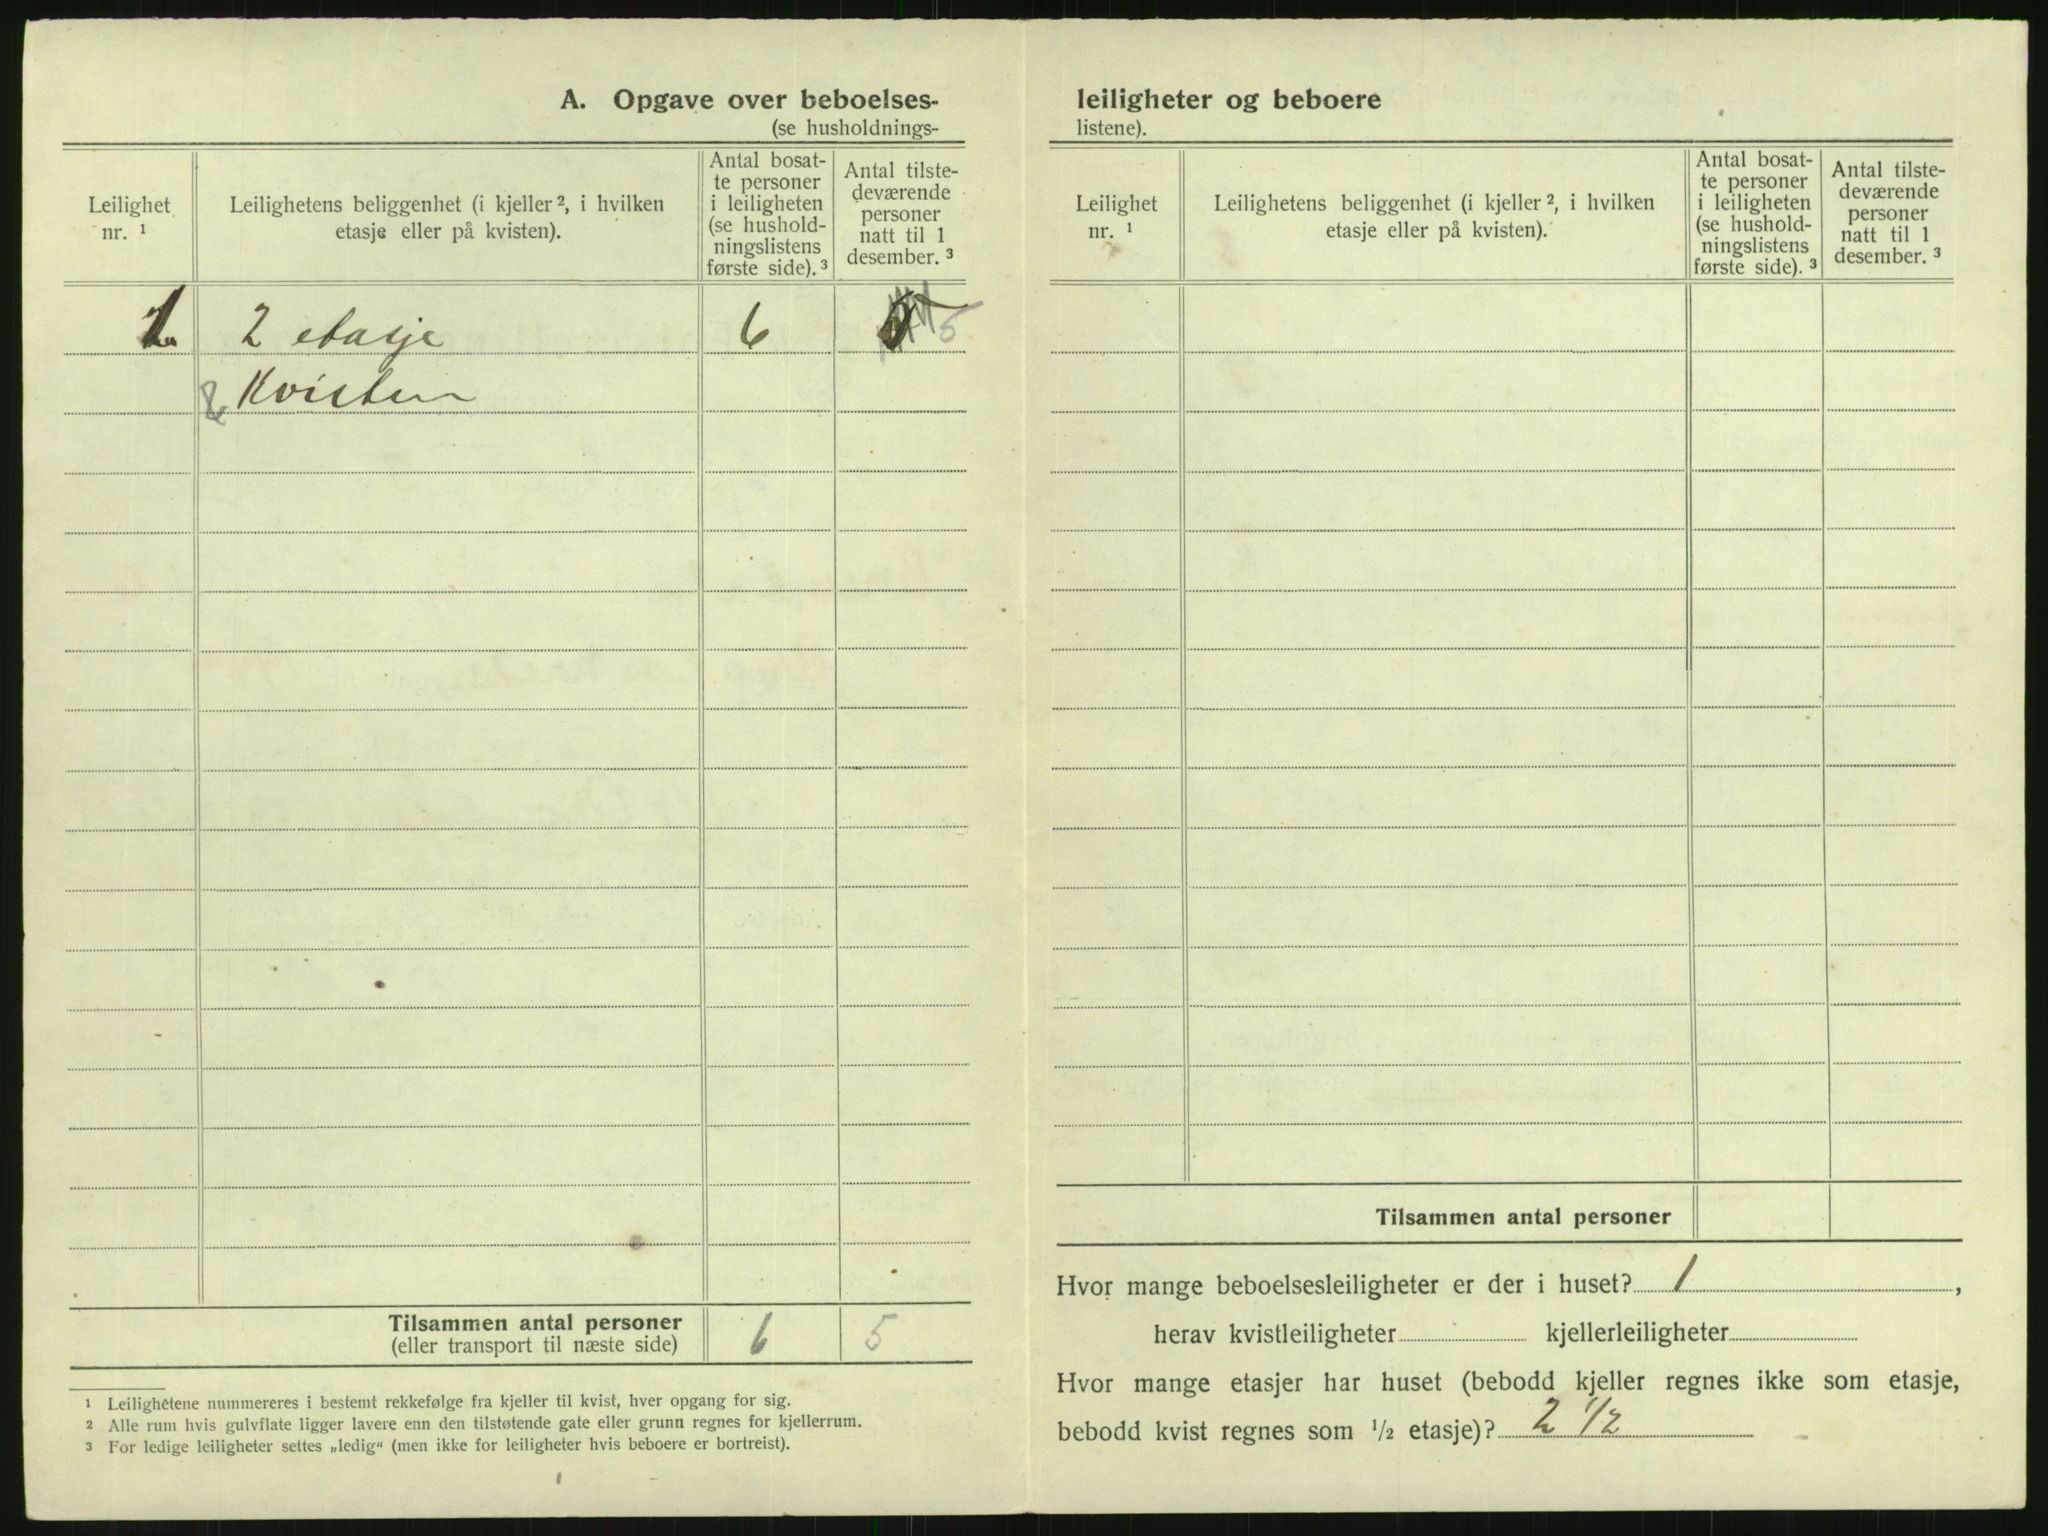 A. Opgave over beboelses-
(se husholdnings-
Leilighet nr. ¹
Leilighetens beliggenhet (i kjeller ², i hvilken
etasje eller på kvisten).
Antal bosat-
te personer
i leiligheten
(se hushold-
ningslistens
første side). ³
Antal tilste-
deværende
personer
natt til 1
desember. ³
1 2 etasje 6 5
& Kvisten
Tilsammen antal personer
(eller transport til næste side)
6 5
¹ Leilighetene nummereres i bestemt rekkefølge fra kjeller til kvist, hver opgang for sig.
² Alle rum hvis gulvflate ligger lavere enn den tilstøtende gate eller grunn regnes for kjellerrum.
³ For ledige leiligheter settes „ledig“ (men ikke for leiligheter hvis beboere er bortreist).
leiligheter og beboere
listene).
Leilighet nr. ¹
Leilighetens beliggenhet (i kjeller ², i hvilken
etasje eller på kvisten).
Antal bosat-
te personer
i leiligheten
(se hushold-
ningslistens
første side). ³
Antal tilste-
deværende
personer
natt til 1
desember. ³
Tilsammen antal personer
Hvor mange beboelsesleiligheter er der i huset? 1 ,
herav kvistleiligheter kjellerleiligheter
Hvor mange etasjer har huset (bebodd kjeller regnes ikke som etasje,
bebodd kvist regnes som ¹/₂ etasje)? 2 1/2